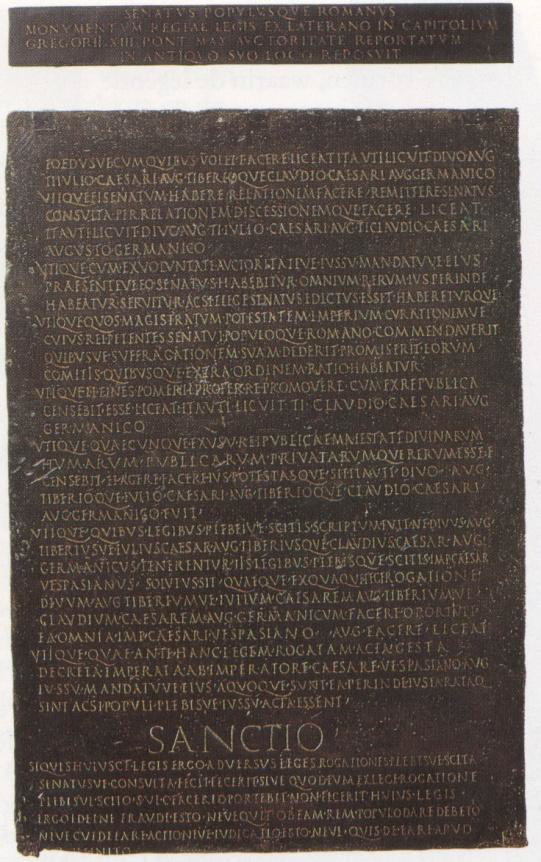 SENATVS POPVLVSQVE ROMANVS
MONVMENTVM REGIAE LEGIS EX LATERANO IN CAPITOLIVM
GREGORII XIII PONT MAX AVCTORITATE REPORTATVM
IN ANTIQVO SVO LOCO REPOSVIT
FOEDVSVE CVM QVIBVS VOLET FACERE LICEAT ITA VTI LICVIT DIVO AVG
TI IVLIO CAESARI AVG TIBERIOQVE CLAVDIO CAESARI AVG GERMANICO
VTIQVE EI SENATVM HABERE RELATIONEM FACERE REMITTERE SENATVS
CONSVLTA PER RELATIONEM DISCESSIONEMQVE FACERE LICEAT
ITA VTI LICVIT DIVO AVG TI IVLIO CAESARI AVG TI CLAVDIO CAESARI
AVGVSTO GERMANICO
VTIQVE CVM EX VOLVNTATE AVCTORITATEVE IVSSV MANDATVVE EIVS
PRAESENTEVE EO SENATVS HABEBITVR OMNIVM RERVM IVS PERINDE
HABEATVR SERVETVR AC SI E LEGE SENATVS EDICTVS ESSET HABERETVRQVE
VTIQVE QVOS MAGISTRATVM POTESTATEM IMPERIVM CVRATIONEMVE
CVIVS REI PETENTES SENATVI POPVLOQVE ROMANO COMMENDAVERIT
QVIBVSVE SVFFRAGATIONEM SVAM DEDERIT PROMISERIT EORVM
COMITIS QVIBVSQVE EXTRA ORDINEM RATIO HABEATVR
VTIQVE EI FINES POMERII PROFERRE PROMOVERE CVM EX REPVBLICA
CENSEBIT ESSE LICEAT ITA VTI LICVIT TI CLAVDIO CAESARI AVG
GERMANICO
VTIQVE QVAECVNQVE EX VSV REI PVBLICAE MAIESTATE DIVINARVM
HVMARVM PVBLICARVM PRIVATARVMQVE RERVM ESSE E
CENSEBIT EI AGERE FACERE IVS POTESTASQVE SIT ITA VTI DIVO AVG
TIBERIOQVE IVLIO CAESARI AVG TIBERIOQVE CLAVDIO CAESARI
AVG GERMANICO FVIT
VTIQVE QVIBVS LEGIBVS PLEBEIVE SCITIS SCRIPTVM FVIT NE DIVVS AVG
TIBERIVSVE IVLIVS CAESAR AVG TIBERIVSQVE CLAVDIVS CAESAR AVG
GERMANICVS TENERENTVR IIS LEGIBVS PLEBISQVE SCITIS IMP CAESAR
VESPASIANVS SOLVTVS SIT QVAEQVE EX QVAQVE LEGE ROGATIONE
DIVVM AVG TIBERIVMVE IVLIVM CAESAREM AVG TIBERIVMVE
CLAVDIVM CAESAREM AVG GERMANICVM FACERE OPORTVIT
EA OMNIA IMP CAESARI VESPASIANO AVG FACERE LICEAT
VTIQVE QVAE ANTE HANC LEGEM ROGATAM ACTA GESTA
DECRETA IMPERATA AB IMPERATORE CAESARE VESPASIANO AVG
IVSSV MANDATVVE EIVS A QVOQVE SVNT EA PERINDE IVSTA RATAQ
SINT AC SI POPVLI PLEBISVE IVSSV ACTA ESSENT
SANCTIO
SI QVIS HVIVSCE LEGIS ERGO ADVERSVS LEGES ROGATIONES PLEBISVE SCITA
SENATVSVE CONSVLTA FECIT FECERIT SIVE QVOD EVM EX LEGE ROGATIONE
PLEBISVE SCITO SVE C FACERE OPORTEBIT NON FECERIT HVIVS LEGIS
ERGO ID EI NE FRAVDI ESTO NEVE QVIT OB EAM REM POPVLO DARE DEBETO
NEVE CVI DE EA RE ACTIO NEVE IVDICATIO ESTO NEVE QVIS DE EA RE APVD